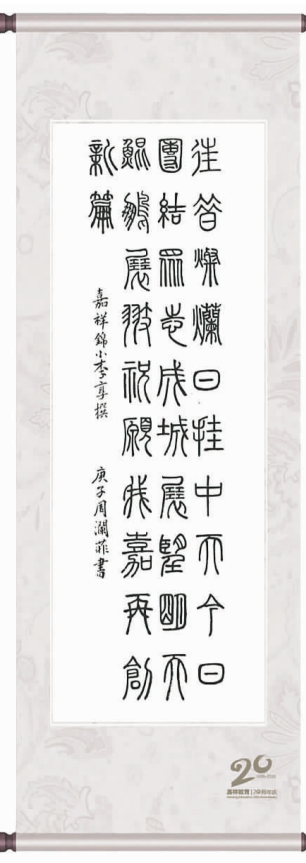 往昔燦爛日挂中天今日
團結眾志成城展望明天
鯤鵬展翅祝願我嘉再創
新篇
嘉祥錦小李享撰　庚子周瀾菲書
20
嘉祥教育